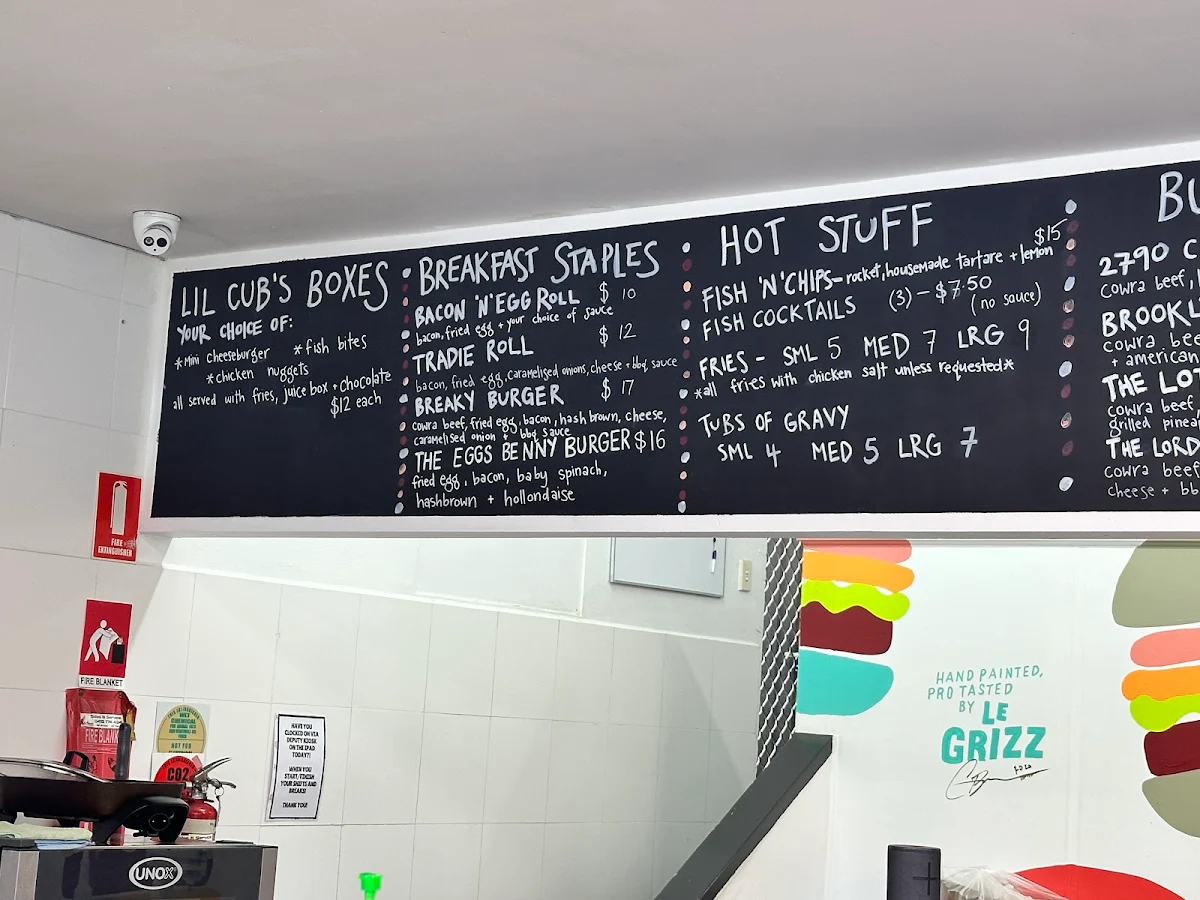 LIL CUB'S BOXES
YOUR CHOICE OF:
*Mini cheeseburger *fish bites
*chicken nuggets
all served with fries, juice box + chocolate
$12 each
BREAKFAST STAPLES
BACON 'N' EGG ROLL $10
bacon, fried egg + your choice of sauce
TRADIE ROLL $12
bacon, fried egg, caramelised onions, cheese + bbq sauce
BREAKY BURGER $17
cowra beef, fried egg, bacon, hash brown, cheese,
caramelised onion + bbq sauce
THE EGGS BENNY BURGER $16
fried egg, bacon, baby spinach,
hashbrown + hollondaise
HOT STUFF
$15
FISH 'N' CHIPS - rocket, housemade tartare + lemon
FISH COCKTAILS (3) - $7.50
(no sauce)
FRIES - SML 5 MED 7 LRG 9
*all fries with chicken salt unless requested*
TUBS OF GRAVY
SML 4 MED 5 LRG 7
BU
2790 C
cowra beef,
BROOKL
cowra bee
+ american
THE LOT
cowra beef
grilled pinea
THE LORD
cowra beef
cheese + bb
FIRE
EXTINGUISHER
FIRE BLANKET
FIRE BLANK
CO2
HAVE YOU
CLOCKED ON VIA
DEPUTY KIOSK
ON THE IPAD
TODAY?!
WHEN YOU
START/FINISH
YOUR SHIFTS AND
BREAKS!
THANK YOU!
UNOX
HAND PAINTED,
PRO TASTED
BY LE
GRIZZ